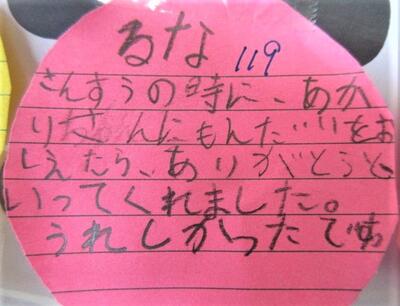 るな 119
さんすうの時に、あか
りちゃんにもんだいをお
しえたら、ありがとうと、
いってくれました。
うれしかったです。